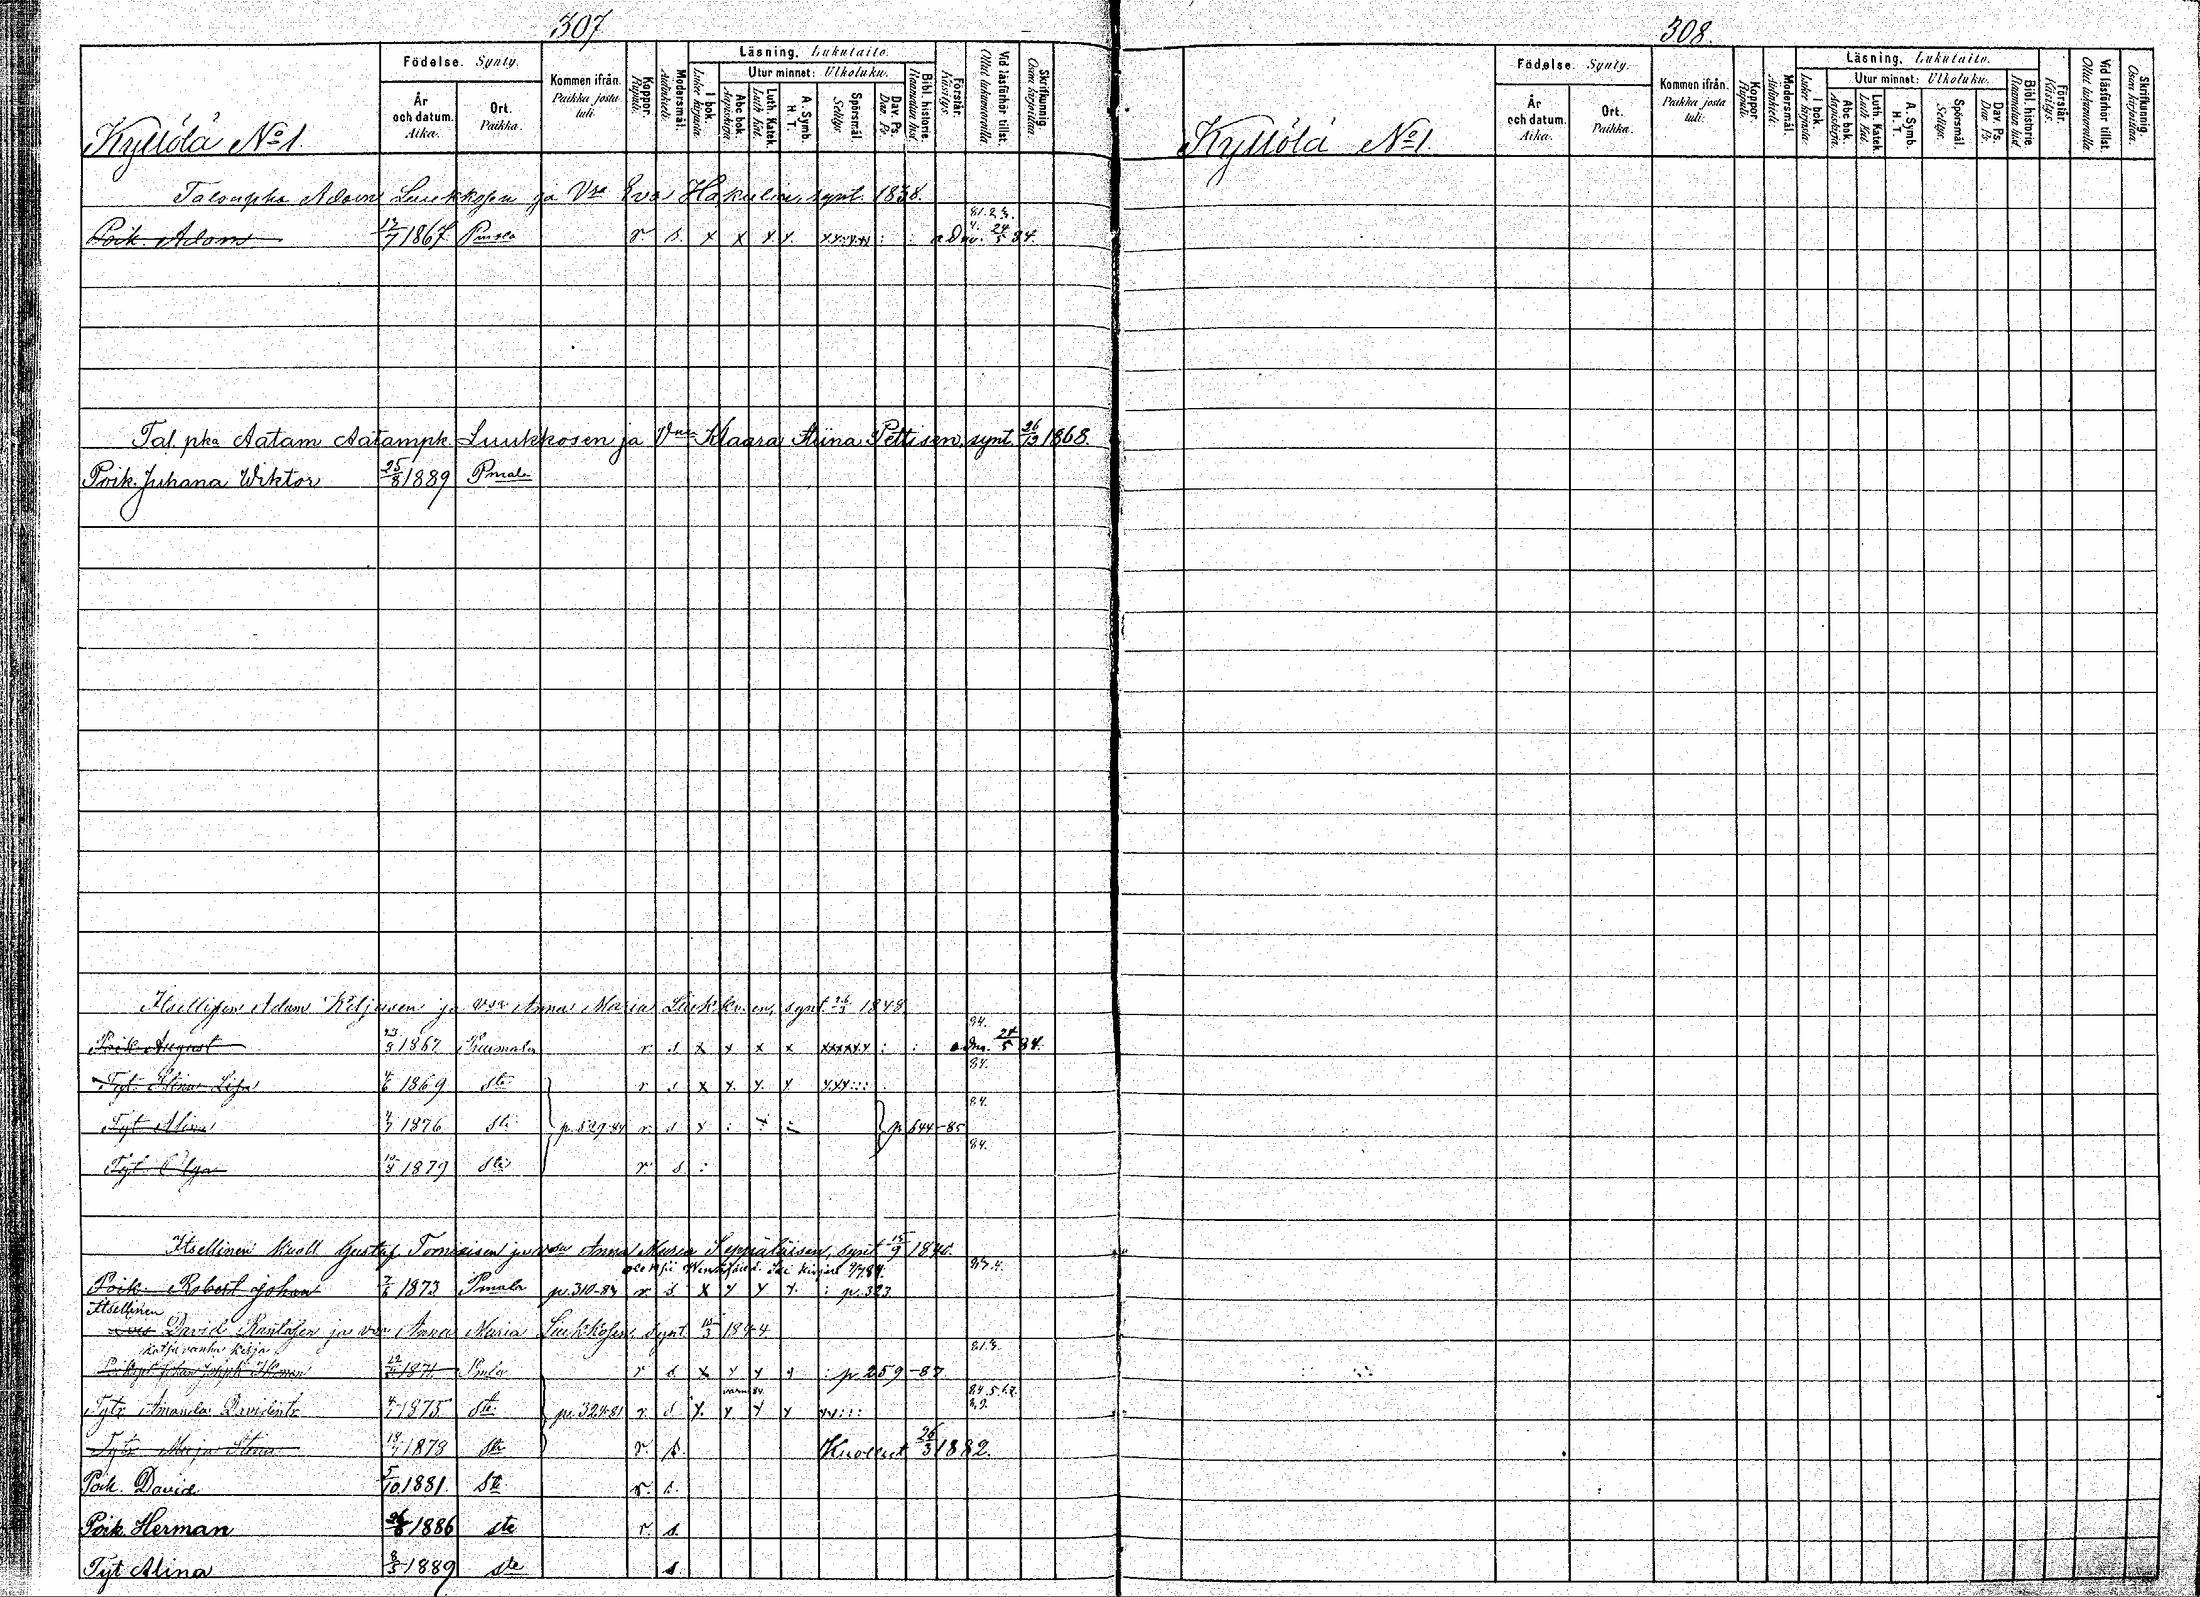 307
Födelse. Synty.
Kommen ifrån. Paikka josta tuli.
Koppor. Rupuli.
Modersmål. Äidinkieli.
Läsning. Lukutaito.
I bok. Lukee kirjasta.
Utur minnet: Ulkoluku.
Abc bok. Aapiskirja.
Luth. Katek. Luth Kat.
A. Symb. H. T.
Spörsmål. Selitys.
Dav. Ps. Dav. Ps.
Bibl. historie. Raamatun hist.
Förstår. Käsitys.
Vid läsförhör tillst. Ollut lukuvuorolla
Skrifkunnig. Osaa kirjoittaa.
År och datum. Aika.
Ort. Paikka.
Kyllölä No 1.
Talonpka Adam Luukkosen ja Vsa Eva Hakulin, synt. 1838.
Poik. Adam 12/7 1867 Pmala r s. x x x x : : adm. 24/5 84.
Tal. pka Aatam Aatampk. Luukkosen ja Vmn Klaara Stiina Pettisen, synt. 26/12 1868.
Poik. Juhana Wiktor 25/8 1889 Pmala
Itsellisen Adam Kiljusen ja vsa Anna Maria Luukkonen, synt. 1848
84.
Poik August 23/9 1867 Puumala r s x x x x xxxxxx : : adm. 24/5 84.
84.
Tyt. Stina Lisa 1869 ste r s x x x x
84.
Tyt Alina 1876 ste p. 529-84 r s x : p 644-85
84.
Tyt. Olga 1879 ste r. s :
Itsellinen kuoll Gustaf Tornvisen ja vsa Anna Maria Seppäläisen, synt 15/9 1840.
Poik. Robert Johan 1873 Pmala p. 310-83 r s x x x x : p. 323
Itsellinen
David Rantasen ja vsa Anna Maria Luukkosen, synt 10/3 1844
katso vanha kirja
81.3.
1871 Pmala r s. x x x x : p. 259-87
84.5.
Tytr Amanda Davidintr 1875 ste. p. 324-81 r s x. x x x
Tytr Maja Stina 18/7 1878 ste r. s. Kuollut 26/3 1882.
Poik. David 5/10 1881. ste. r. s.
Poik Herman 26/8 1886 ste r. s.
Tyt Alina 8/5 1889 ste s
308.
Födelse. Synty.
Kommen ifrån. Paikka josta tuli.
Koppor. Rupuli.
Modersmål. Äidinkieli.
Läsning. Lukutaito.
I bok. Lukee kirjasta.
Utur minnet: Ulkoluku.
Abc bok. Aapiskirja.
Luth. Katek. Luth Kat.
A. Symb. H. T.
Spörsmål. Selitys.
Dav. Ps. Dav. Ps.
Bibl. historie Raamatun hist
Förstår. Käsitys.
Vid läsförhör tillst. Ollut lukuvuorolla
Skrifkunnig. Osaa kirjoittaa.
År och datum. Aika.
Ort. Paikka.
Kyllölä No 1.